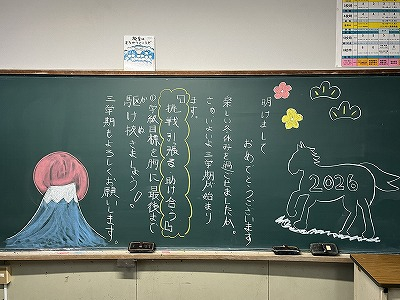 明けまして
おめでとうございます
楽しい冬休みを過ごせましたか。
さあ、いよいよ三学期が始まり
ます。
「挑戦 引張る 助け合う」
の学級目標を胸に最後まで
駆け抜きましょう!
三学期もよろしくお願いします。
2026